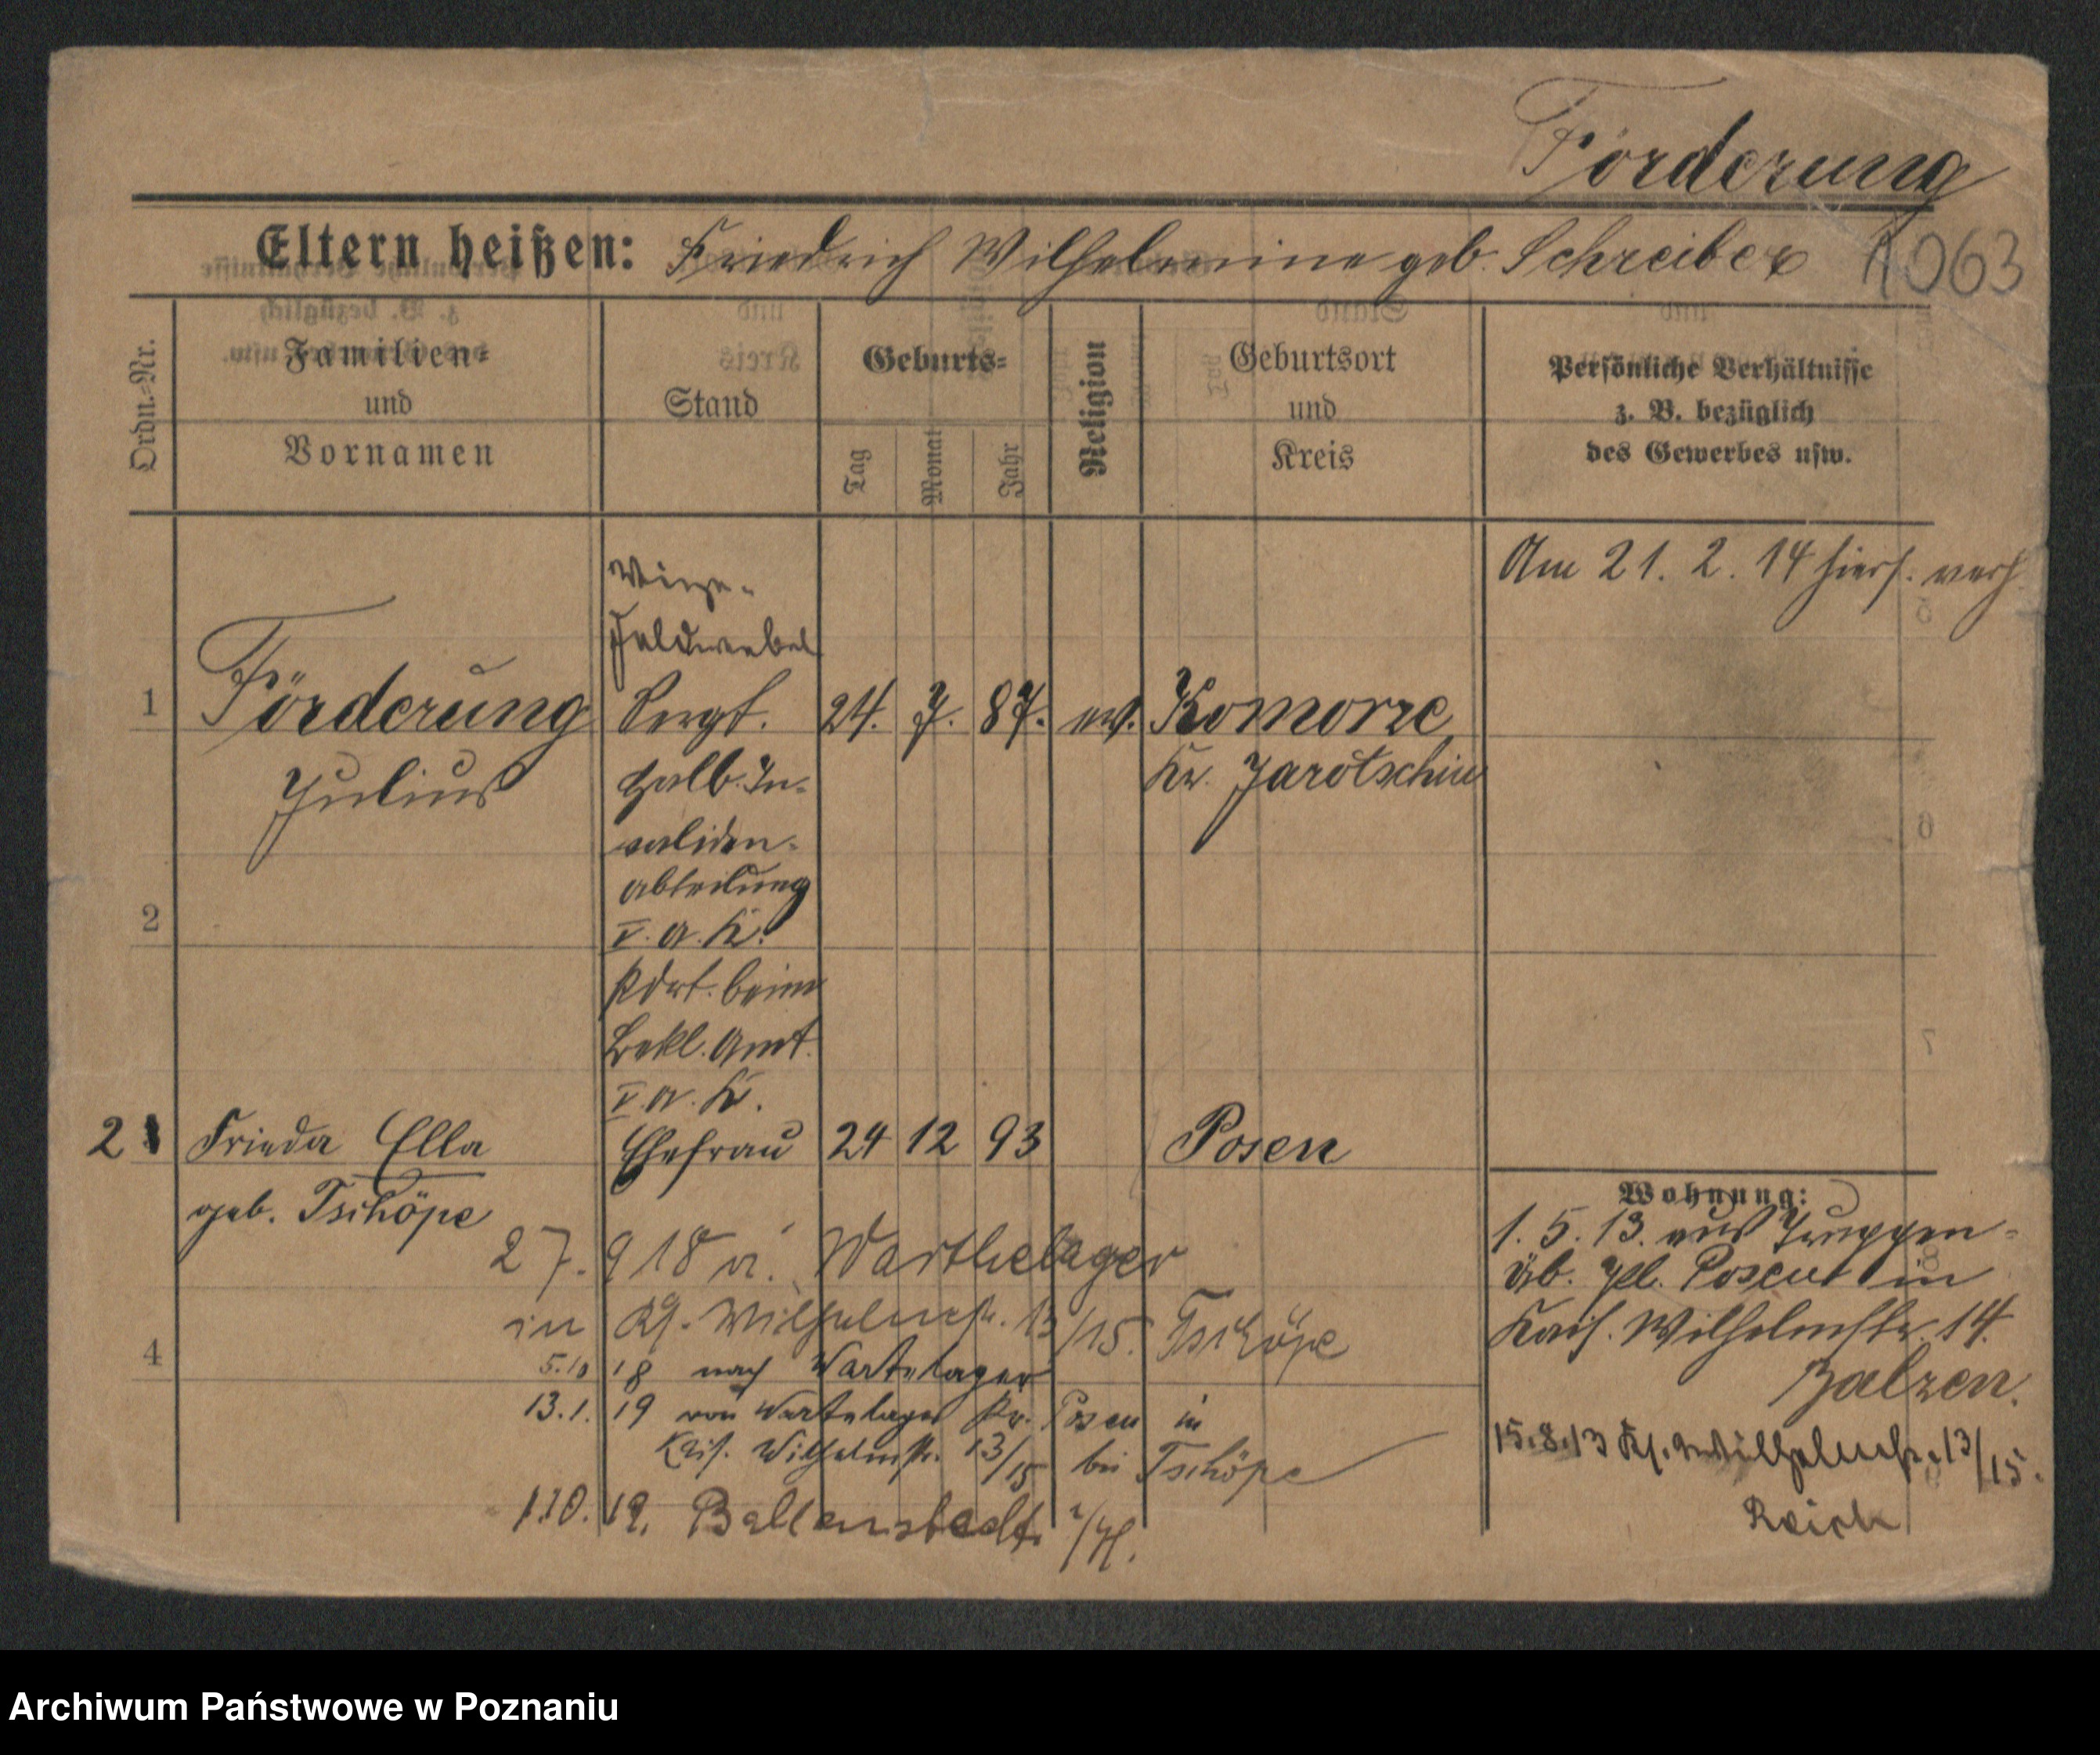 Förderung
Eltern heißen: Friedrich Wilhelmine geb. Schreiber 1063
Ordn.=Nr.
Familien=
und
Vornamen
Stand
Geburts=
Tag
Monat
Jahr
Religion
Geburtsort
und
Kreis
Persönliche Verhältnisse
z. B. bezüglich
des Gewerbes usw.
Am 21. 2. 14 hiers. verh.
Vize-
Feldwebel
1 Förderung Sergt. 24. 7. 87. ev. Komorze
Julius Halb. In- Kr. Jarotschin
validen-
abteilung
2
V. A. K.
Kdrt. beim
Bekl. Amt.
V. A. K.
2 Frieda Ella Ehefrau 24 12 93 Posen
geb. Tschöpe
Wohnung:
1. 5. 13. aus Truppen-
Üb. Pl. Posen in
Kais. Wilhelmstr. 14.
Balzen.
15.8.13 Ks. Wilhelmstr. 13/15.
Reich
27. 9 18 a. Warthelager
in Ks. Wilhelmstr. 13/15. Tschöpe
4
5.10 18 nach Wartelager
13.1. 19 von Wartelager Kr. Posen in
Kais. Wilhelmstr. 13/15 bei Tschöpe
1.10. 19. Ballenstedt
Archiwum Państwowe w Poznaniu